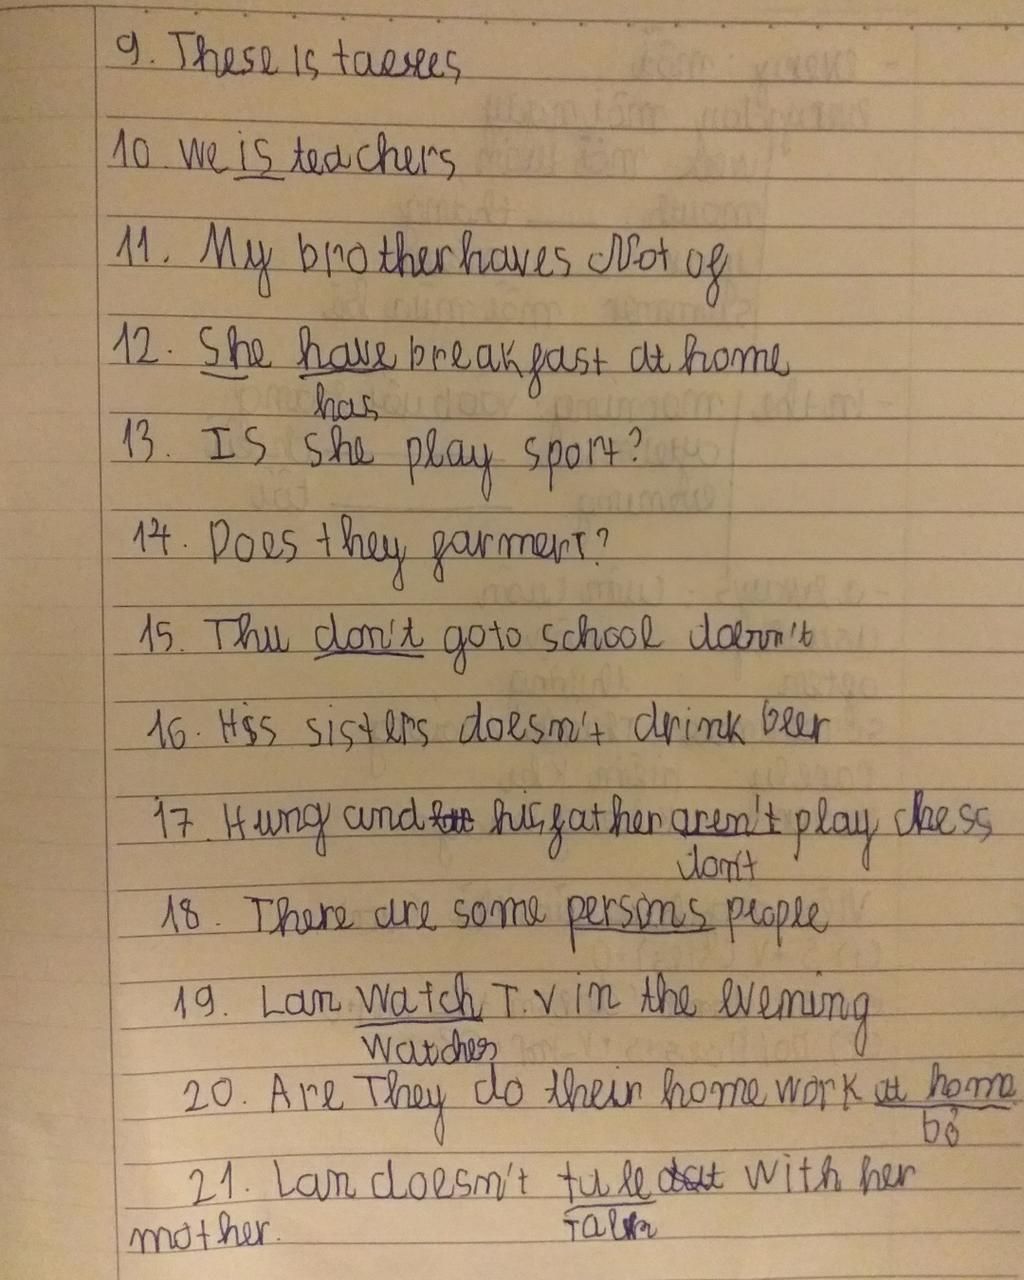 9. These is
10 We is teachers
11. My brother haves Not of
12. She have breakfast at home
has
13. Is she play sport?
14. Does they farmers?
15. Thu don't go to school doesn't
16. His sisters doesn't drink beer
17. Hung and his father aren't play chess
don't
18. There are some persons people
19. Lan watch T.V in the evening
watches
20. Are They do their home work at home
bỏ
21. Lan doesn't with her
mother.